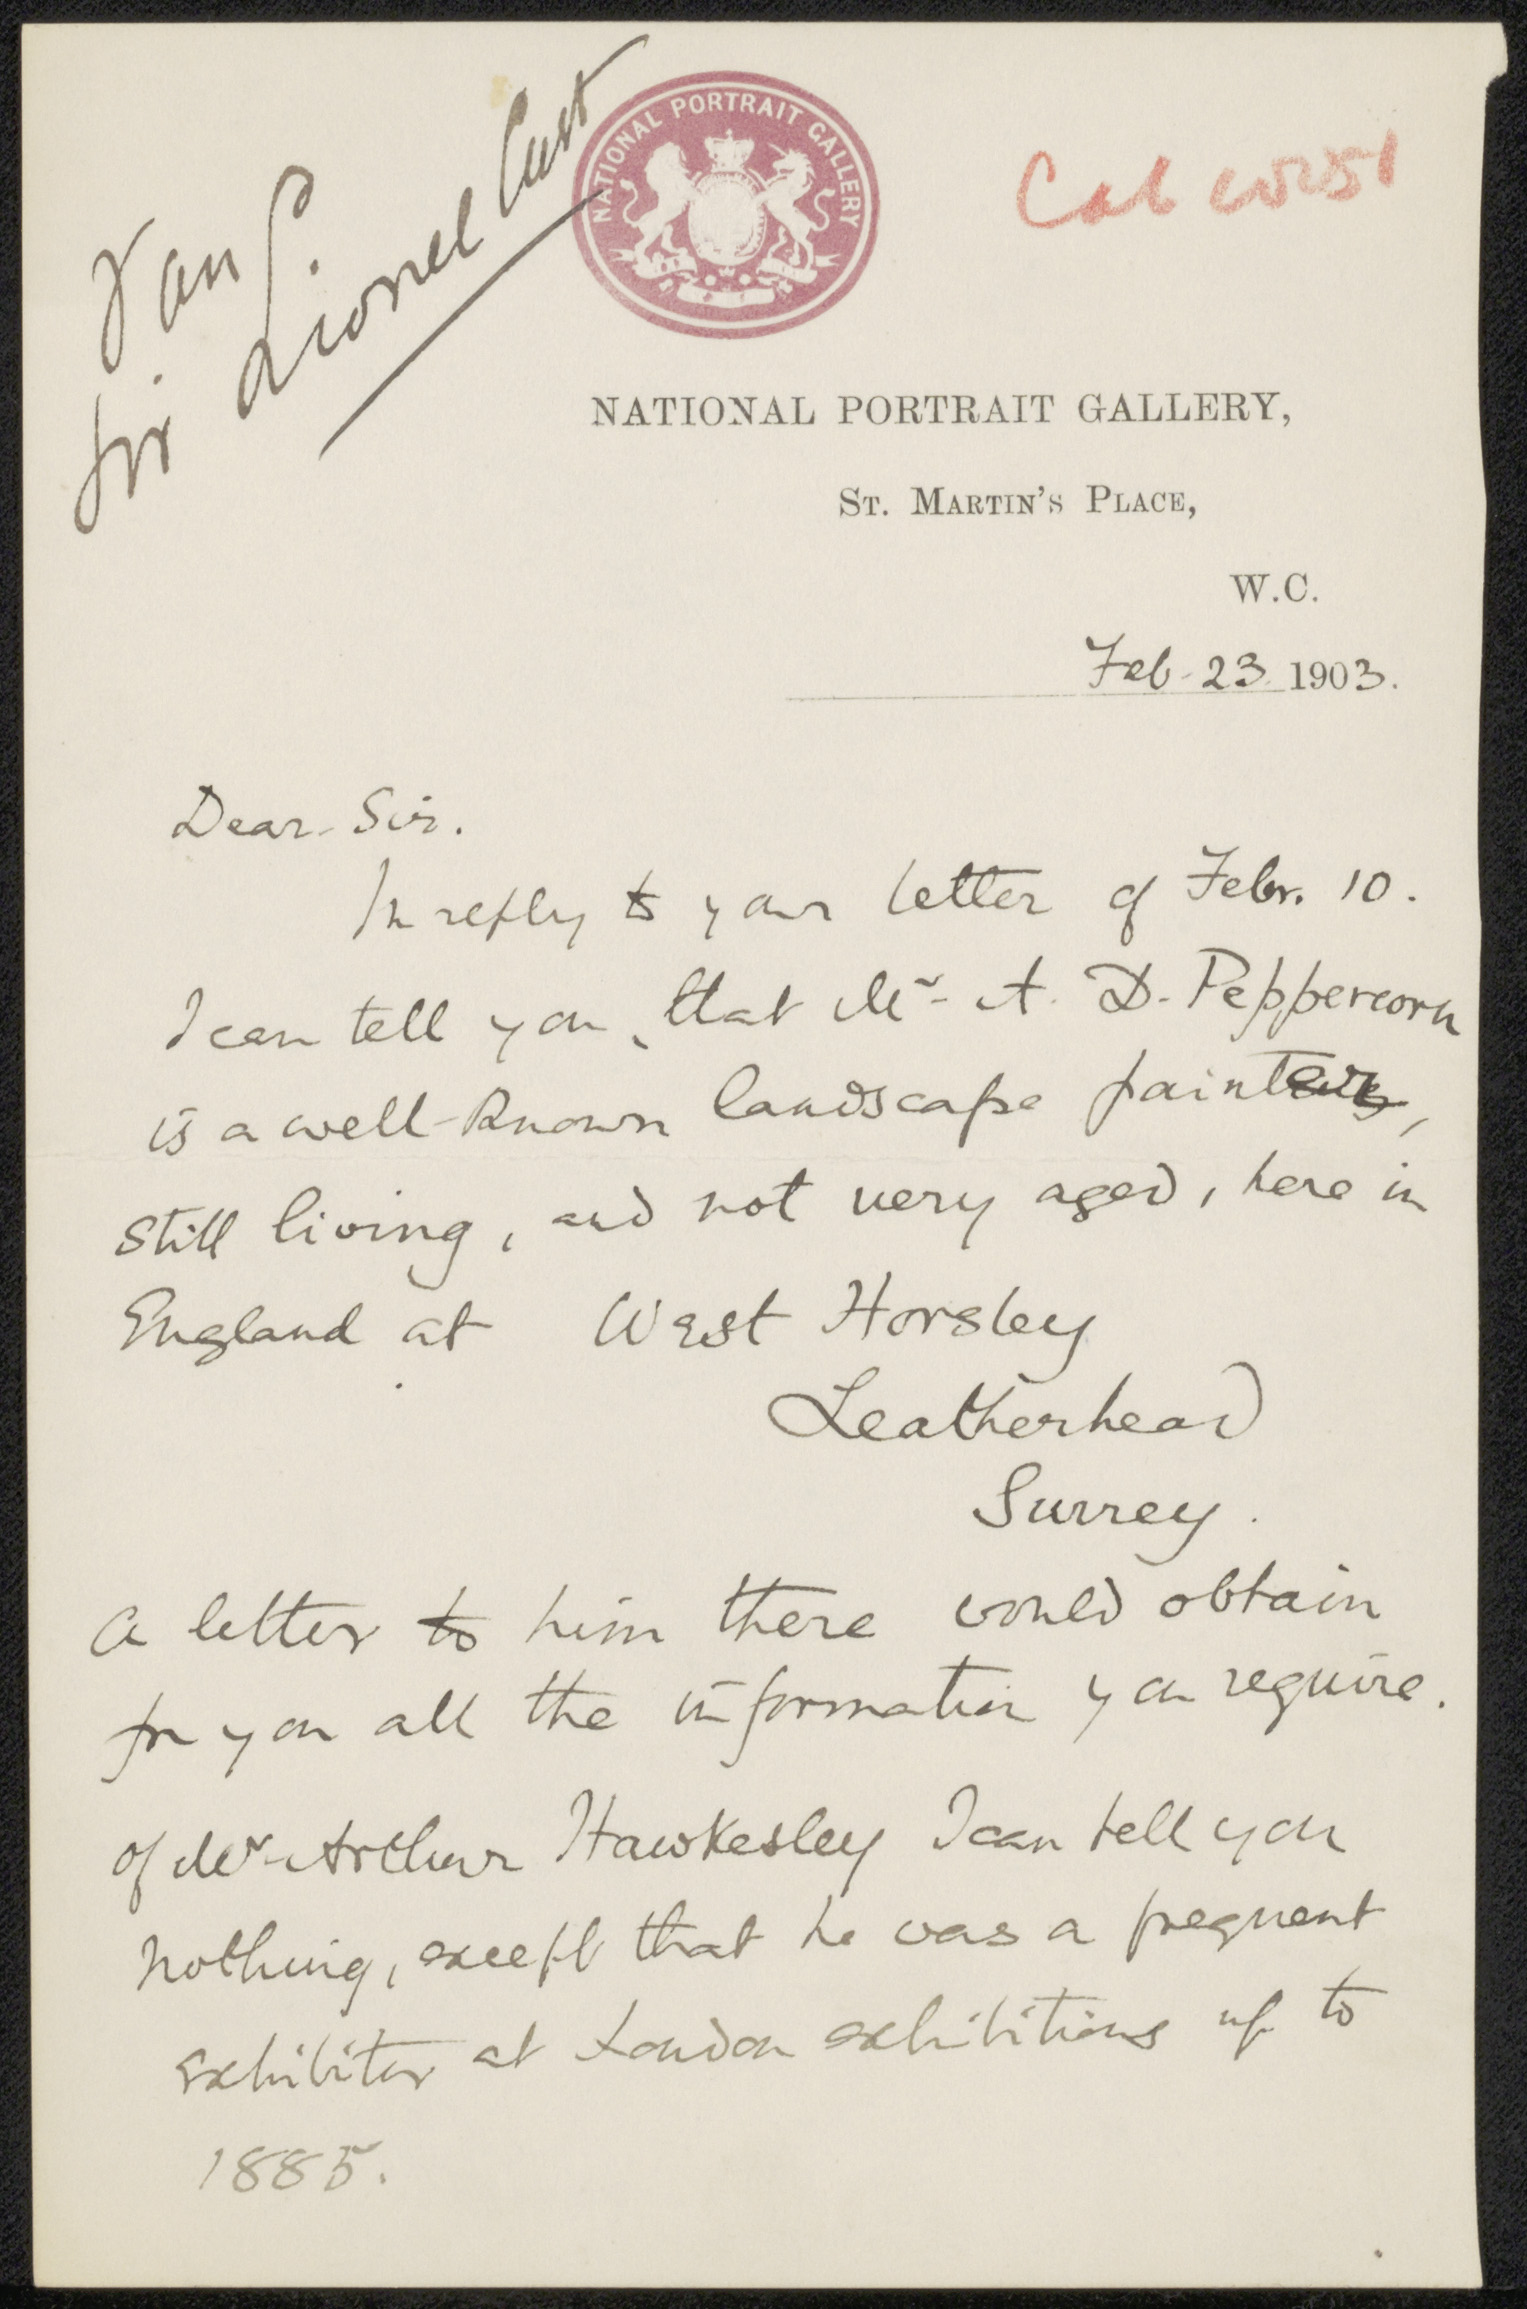 Van S.
Sir Lionel Cust
NATIONAL PORTRAIT GALLERY
NATIONAL PORTRAIT GALLERY,
ST. MARTIN'S PLACE,
W.C.
Feb. 23. 1903.
Dear Sir.
In reply to your letter of Febr. 10.
I can tell you, that Mr. A. D. Peppercorn
is a well-known landscape painter,
still living, and not very aged, here in
England at West Horsley
Leatherhead
Surrey.
A letter to him there would obtain
for you all the information you require.
Of Mr. Arthur Hawkesley I can tell you
nothing, except that he was a frequent
exhibitor at London exhibitions up to
1885.